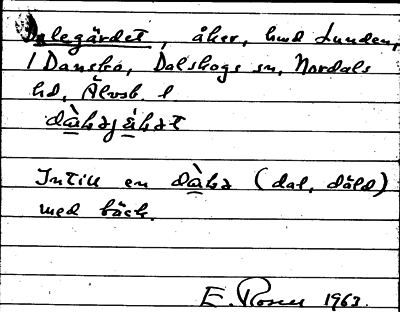 Dalegärdet, åker, hmd Lunden,
1 Dansbo, Dalskogs sn, Nordals
hd, Älvsb. l
Intill en (dal, däld)
med bäck.
E. Rosen 1963.